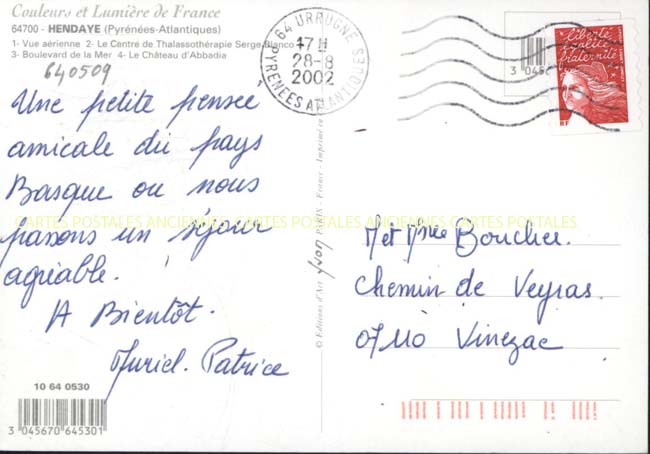 Couleurs et Lumière de France
64700 - HENDAYE (Pyrénées-Atlantiques)
1- Vue aérienne 2- Le Centre de Thalassothérapie Serge Blanco
3- Boulevard de la Mer 4- Le Château d'Abbadia
640509
Une petite pensée
amicale du pays
Basque ou nous
passons un séjour
agréable.
A Bientôt.
Muriel. Patrice
10 64 0530
3 045670 645301
64 URRUGNE
17H
28-8
2002
PYRENEES ATLANTIQUES
3 0456
liberté
égalité
fraternité
© Editions d'Art yvon PARIS - France - Imprimé en
CARTES POSTALES ANCIENNES CARTES POSTALES ANCIENNES CARTES POSTALES
M et Mme Boucher.
Chemin de Veyras.
07110 Vinezac